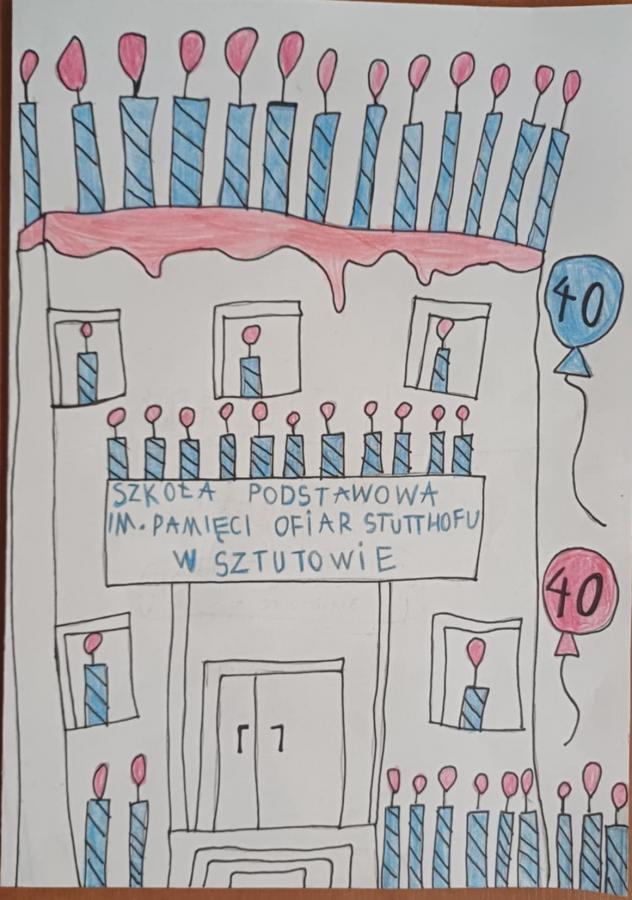 40
SZKOŁA PODSTAWOWA
IM. PAMIĘCI OFIAR STUTTHOFU
W SZTUTOWIE
40